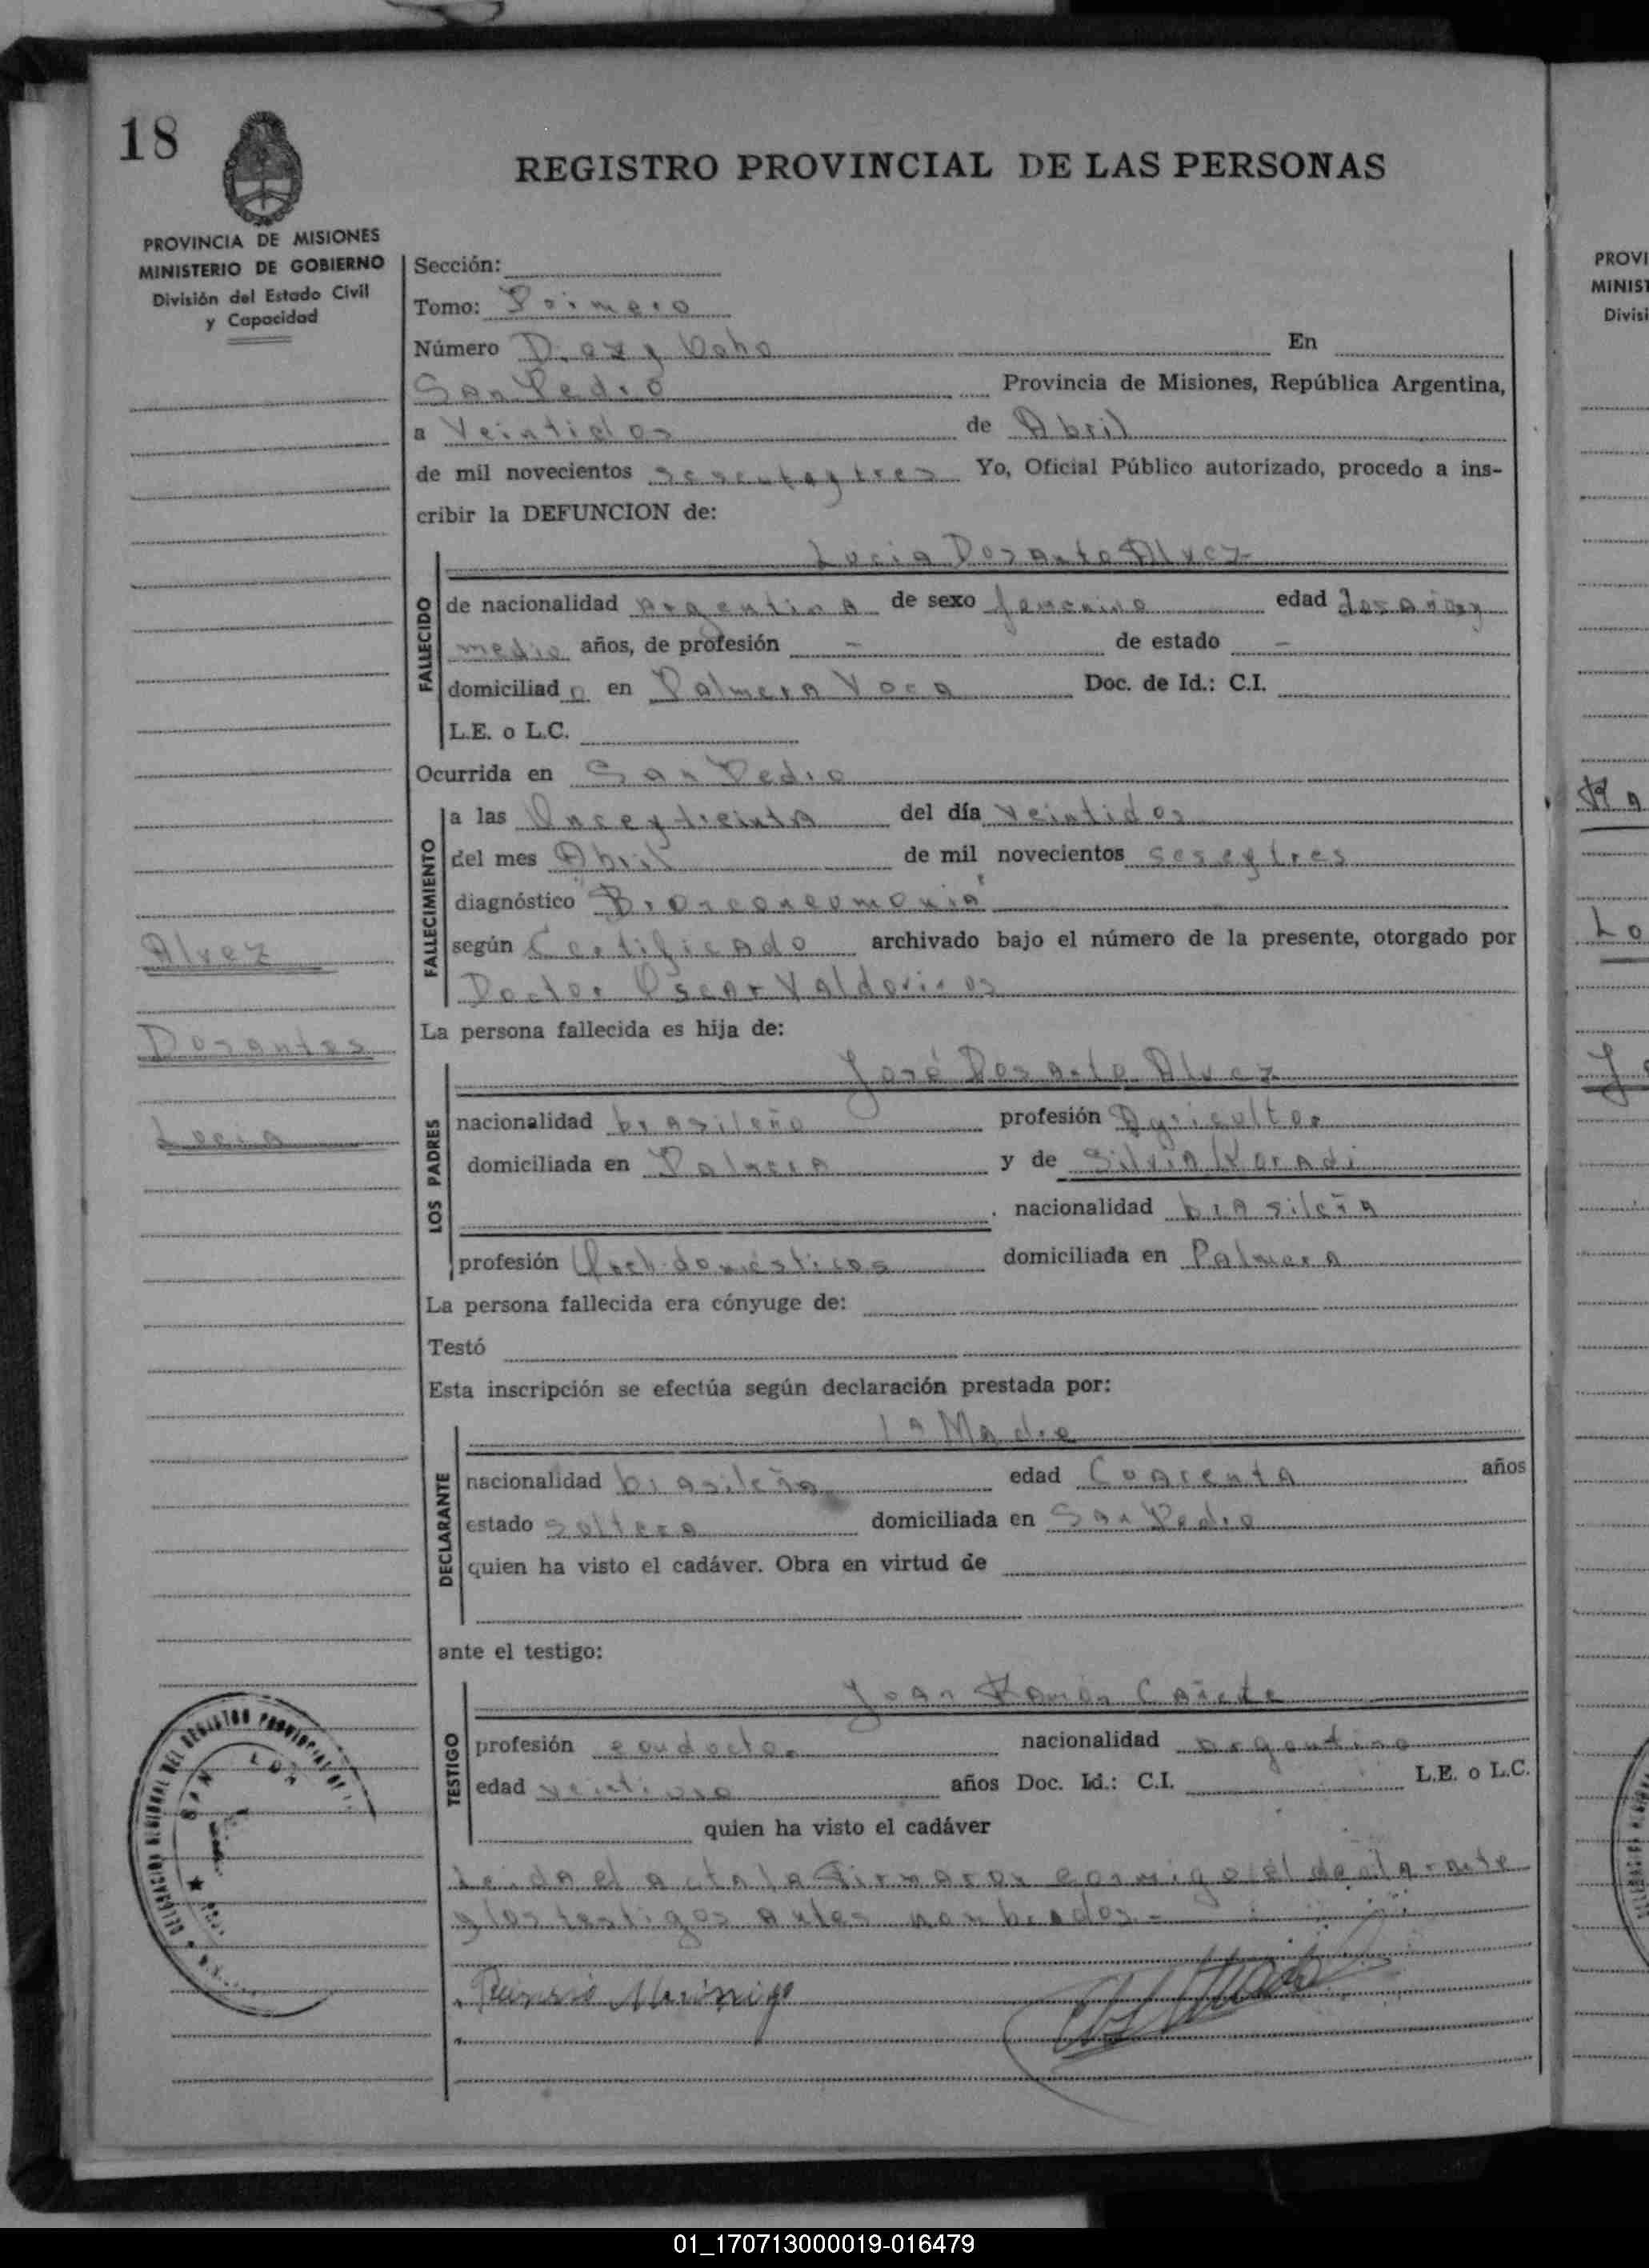 18
REGISTRO PROVINCIAL DE LAS PERSONAS
PROVINCIA DE MISIONES
MINISTERIO DE GOBIERNO
División del Estado Civil
y Capacidad
Sección:
Tomo: Primero
Número Diez y Ocho En
San Pedro Provincia de Misiones, República Argentina,
a Veintidos de Abril
de mil novecientos Yo, Oficial Público autorizado, procedo a ins-
cribir la DEFUNCION de:
Lucia Dosanto Alvez
FALLECIDO
de nacionalidad argentina de sexo edad dos años y
medio años, de profesión - de estado -
domiciliad a en Palmera Voca Doc. de Id.: C.I.
L.E. o L.C.
Ocurrida en San Pedro
FALLECIMIENTO
a las Once y treinta del día veintidos
del mes Abril de mil novecientos seseytres
diagnóstico "Bronconeumonia"
según Certificado archivado bajo el número de la presente, otorgado por
Doctor Oscar
Alvez
Dosantos
Lucia
La persona fallecida es hija de:
José Dosanto Alvez
LOS PADRES
nacionalidad brasileño profesión Agricultor
domiciliada en Palmera y de Silvia Koradi
nacionalidad brasileña
profesión domésticos domiciliada en Palmera
La persona fallecida era cónyuge de:
Testó
Esta inscripción se efectúa según declaración prestada por:
la Madre
DECLARANTE
nacionalidad brasileña edad Cuarenta años
estado soltera domiciliada en San Pedro
quien ha visto el cadáver. Obra en virtud de
ante el testigo:
Juan Ramón Cañete
TESTIGO
profesión conductor nacionalidad argentino
edad años Doc. Id.: C.I. L.E. o L.C.
quien ha visto el cadáver
Leida el acta la Firmaron conmigo el declarante
y los testigos antes nombrados.-
PROVI
MINIST
Divisi
01_170713000019-016479